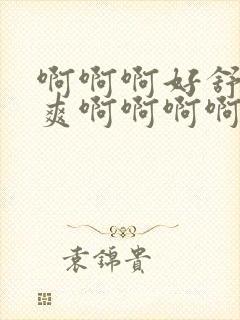 啊啊啊好舒
爽啊啊啊啊
袁锦贵